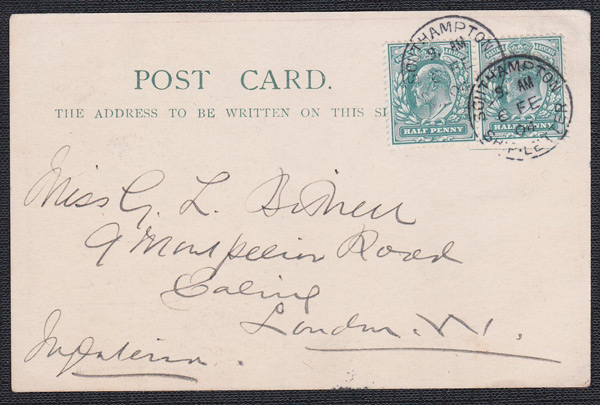 POST CARD.
THE ADDRESS TO BE WRITTEN ON THIS SI
HALF PENNY
HALF PENNY
SOUTHAMPTON
9 AM
FE
SOUTHAMPTON
9 AM
6 FE
04
SHIP-LETTER
Miss G. L.
9 Montpelier Road
Ealing
London. W.
Inglaterra.